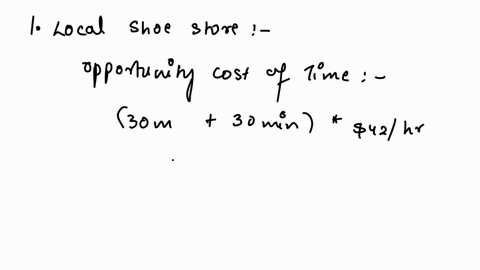 1. Local shoe store :-
opportunity cost of Time :-
(30m + 30min) * $42/hr